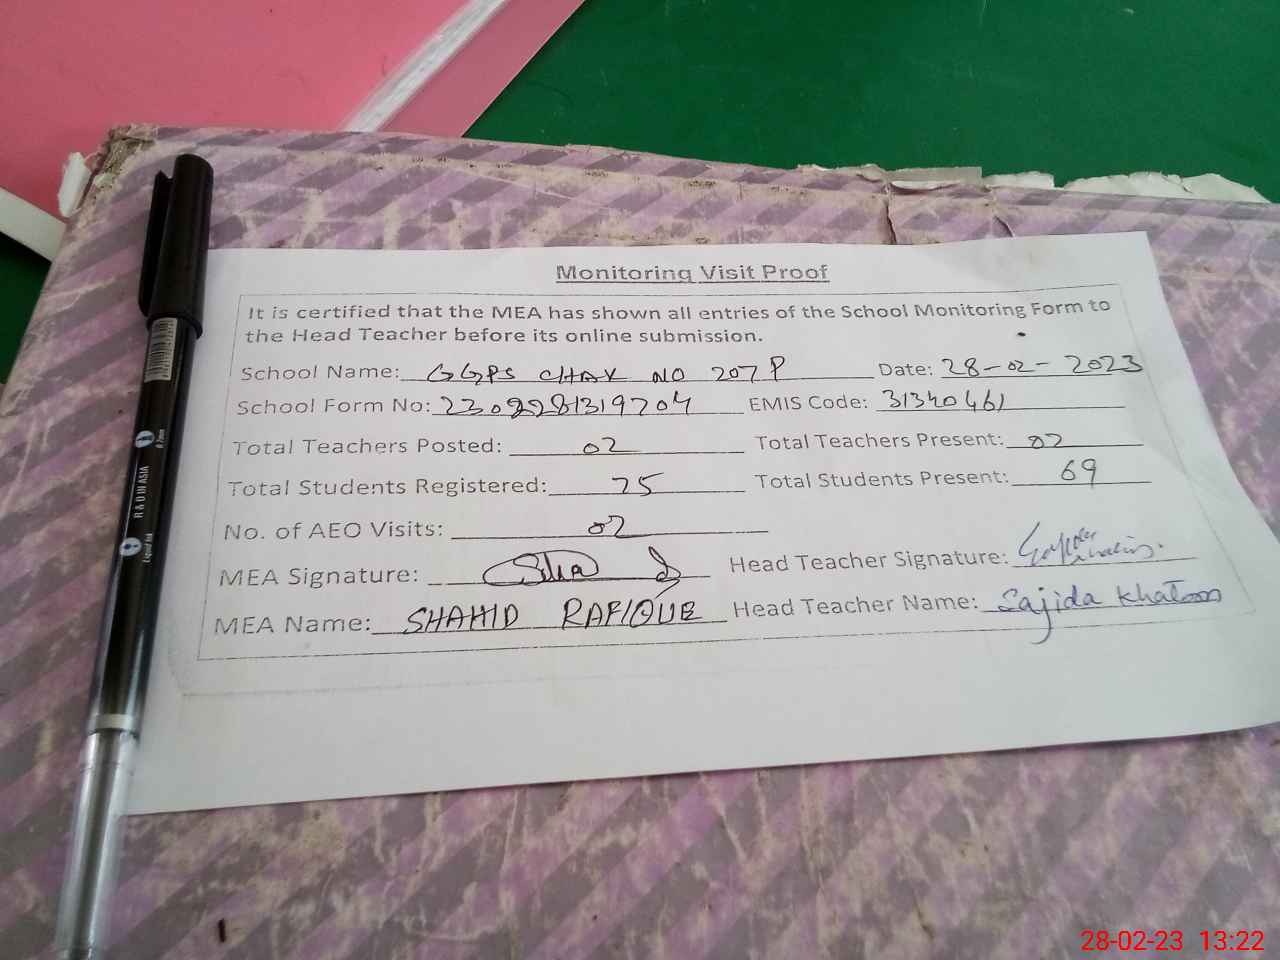 Monitoring Visit Proof
It is certified that the MEA has shown all entries of the School Monitoring Form to
the Head Teacher before its online submission.
School Name: GGPS CHAK NO 207 P Date: 28-02-2023
School Form No: 2302281319704 EMIS Code: 31340461
Total Teachers Posted: 02 Total Teachers Present: 02
Total Students Registered: 75 Total Students Present: 69
No. of AEO Visits: 02
MEA Signature: Head Teacher Signature:
MEA Name: SHAHID RAFIQUE Head Teacher Name: Sajida Khatoon
R & D IN ASIA
Liquid Ink
0.7mm
28-02-23 13:22